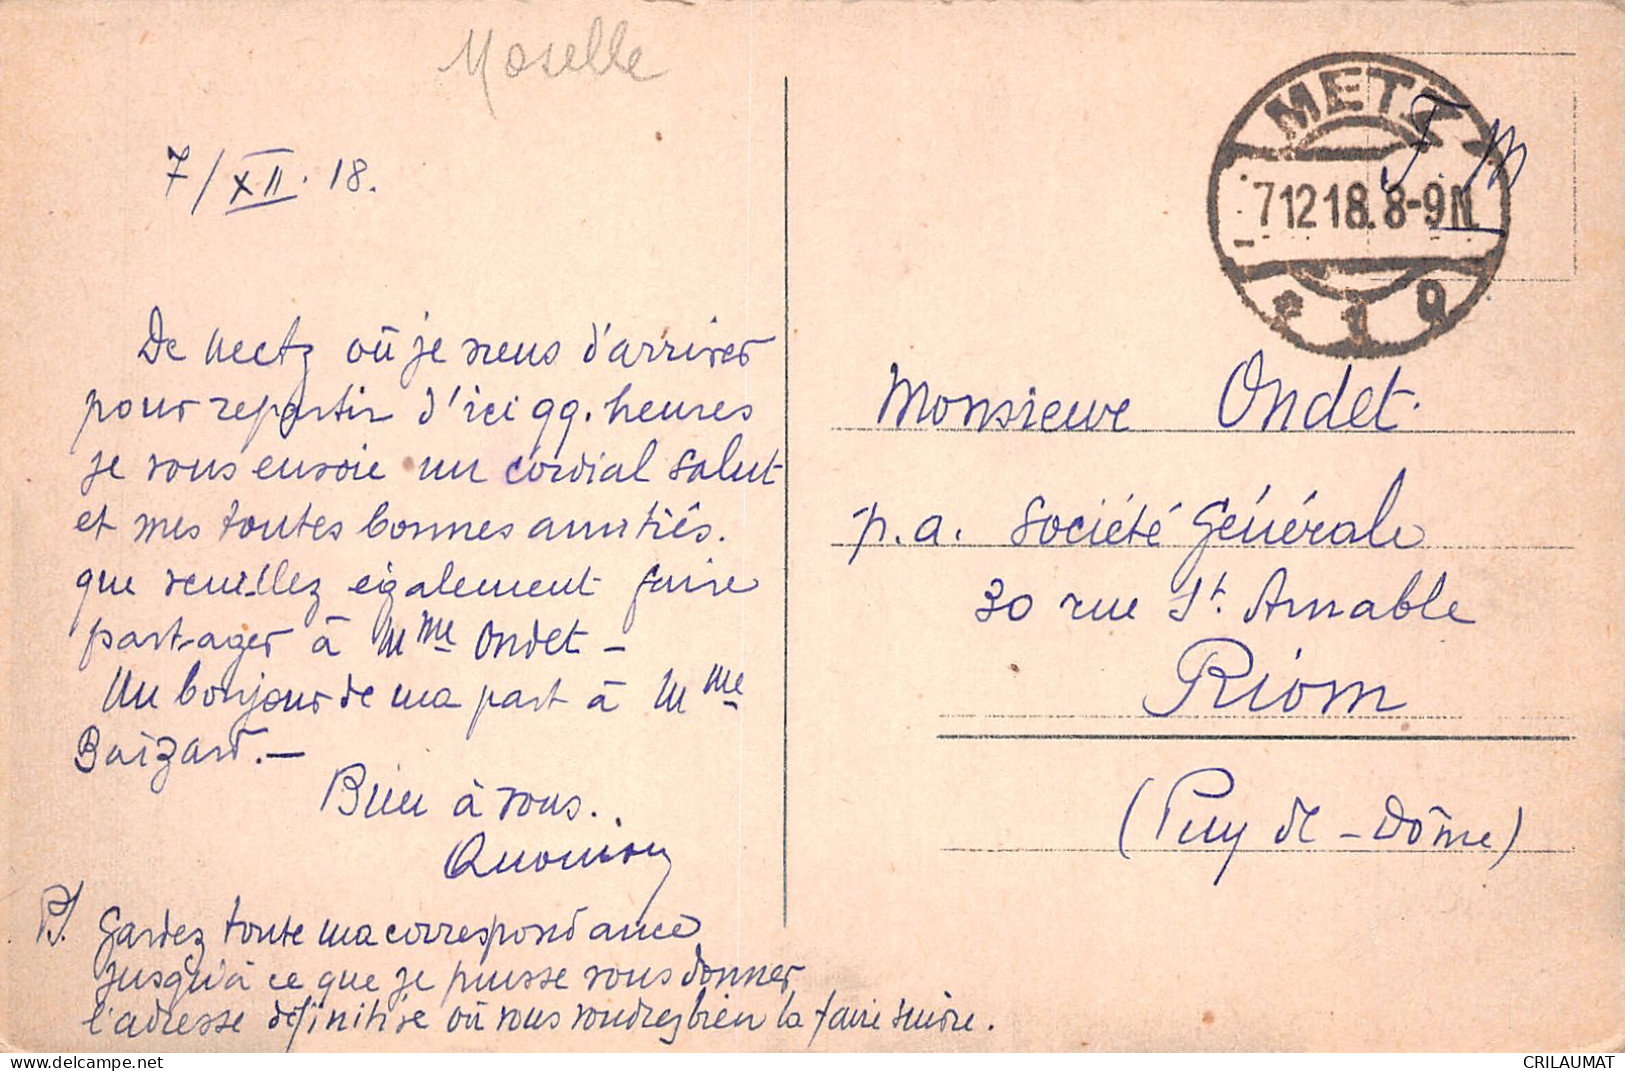 Moselle
7/XII. 18.
De Metz où je viens d'arriver
pour repartir d'ici qq. heures
je vous envoie un cordial salut
et mes toutes bonnes amitiés.
que veuillez également faire
partager à Mme Ondet –
Un bonjour de ma part à Mme
Boizard. –
Bien à vous.
PS. Gardez toute ma correspondance
jusqu'à ce que je puisse vous donner
l'adresse définitive où vous voudrez bien la faire suivre.
METZ
7 12 18. 8-9 N
* 1 g
F. M
Monsieur Ondet.
p.a. Société Générale
30 rue St. Amable
Riom
(Puy de-Dôme)
https://www.delcampe.net
CRILAUMAT